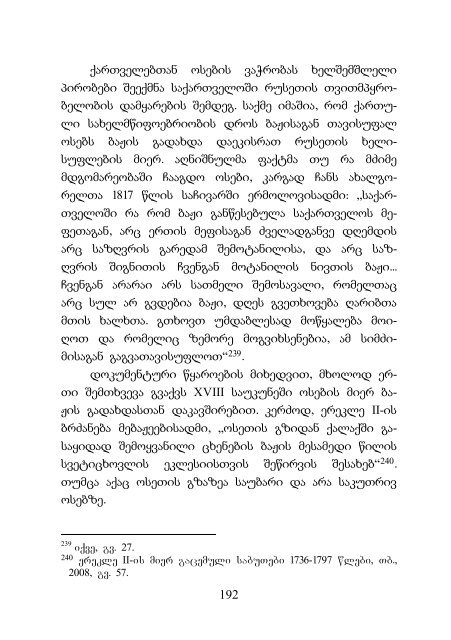 ქართველებთან ოსების ვაჭრობას ხელშემშლელი
პირობები შეექმნა საქართველოში რუსეთის თვითმპყრო-
ბელობის დამყარების შემდეგ. საქმე იმაშია, რომ ქართუ-
ლი სახელმწიფოებრიობის დროს ბაჟისაგან თავისუფალ
ოსებს ბაჟის გადახდა დაეკისრათ რუსეთის ხელი-
სუფლების მიერ. აღნიშნულმა ფაქტმა თუ რა მძიმე
მდგომარეობაში ჩააგდო ოსები, კარგად ჩანს ახალგო-
რელთა 1817 წლის საჩივარში ერმოლოვისადმი: „საქარ-
თველოში რა რომ ბაჟი განწესებულა საქართველოს მე-
ფეთაგან, არც ერთის მეფისაგან ძველადგანვე დღემდის
არც საზღვრის გარედამ შემოტანილისა, და არც საზ-
ღვრის შიგნითის ჩვენგან მოტანილის ნივთის ბაჟი...
ჩვენგან არარაი არს სათმელი შემოსავალი, რომელთაც
არც სულ არ გვდებია ბაჟი, დღეს გვეთხოვება ღარიბთა
მთის ხალხთა. გთხოვთ უმდაბლესად მოწყალება მოი-
ღოთ და რომელიც ზემორე მოგვიხსენებია, ამ სიმძი-
მისაგან გაგვათავისუფლოთ“239.
დოკუმენტური წყაროების მიხედვით, მხოლოდ ერ-
თი შემთხვევა გვაქვს XVIII საუკუნეში ოსების მიერ ბა-
ჟის გადახდასთან დაკავშირებით. კერძოდ, ერეკლე II-ის
ბრძანება მებაჟეებისადმი, „ოსეთის გზიდან ქალაქში გა-
საყიდად შემოყვანილი ცხენების ბაჟის მესამედი წილის
სვეტიცხოვლის ეკლესიისთვის შეწირვის შესახებ“240.
თუმცა აქაც ოსეთის გზაზეა საუბარი და არა საკუთრივ
ოსებზე.
239 იქვე, გვ. 27.
240 ერეკლე II-ის მიერ გაცემული საბუთები 1736-1797 წლები, თბ.,
2008, გვ. 57.
192